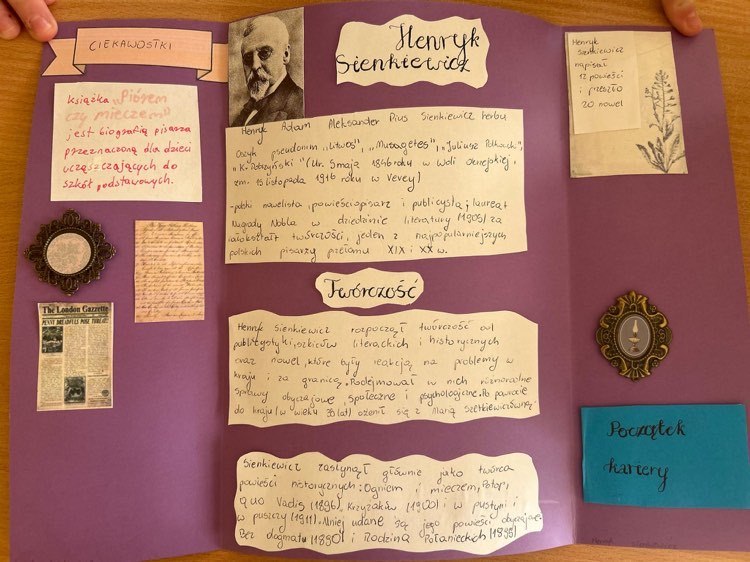 CIEKAWOSTKI
książka „Piórem
czy mieczem"
jest biografią pisarza
przeznaczoną dla dzieci
uczęszczających do
szkół podstawowych.
The London Gazette
PENNY DREADFULS POSE THREAT!
Henryk
Sienkiewicz
Henryk Adam Aleksander Pius Sienkiewicz herbu
Oszyk pseudonim „Litwos", „Musagetes", „Juliusz Polkowski",
„K. Dobrzyński" (Ur. 5 maja 1846 roku w Woli Okrzejskiej,
zm. 15 listopada 1916 roku w Vevey)
-polski nowelista, powieściopisarz i publicysta; laureat
Nagrody Nobla w dziedzinie literatury (1905) za
całokształt twórczości, jeden z najpopularniejszych
polskich pisarzy przełomu XIX i XX w.
Twórczość
Henryk Sienkiewicz rozpoczął twórczość od
publicystyki, szkiców literackich i historycznych
oraz nowel, które były reakcją na problemy w
kraju i za granicą. Podejmował w nich różnorakie
sprawy obyczajowe, społeczne i psychologiczne. Po powrocie
do kraju (w wieku lat) ożenił się z Marią Szetkiewiczówną
Sienkiewicz zasłynął głównie jako twórca
powieści historycznych: Ogniem i mieczem, Potop,
Quo Vadis (1896), Krzyżaków (1900) i w pustyni i
w puszczy (1911). Mniej udane są jego powieści obyczajowe
Bez dogmatu (1890) i Rodzina Połanieckich (1895)
Henryk
Sienkiewicz
napisał
12 powieści
i przeszło
20 nowel
Początek
kariery
Henryk Sienkiewicz